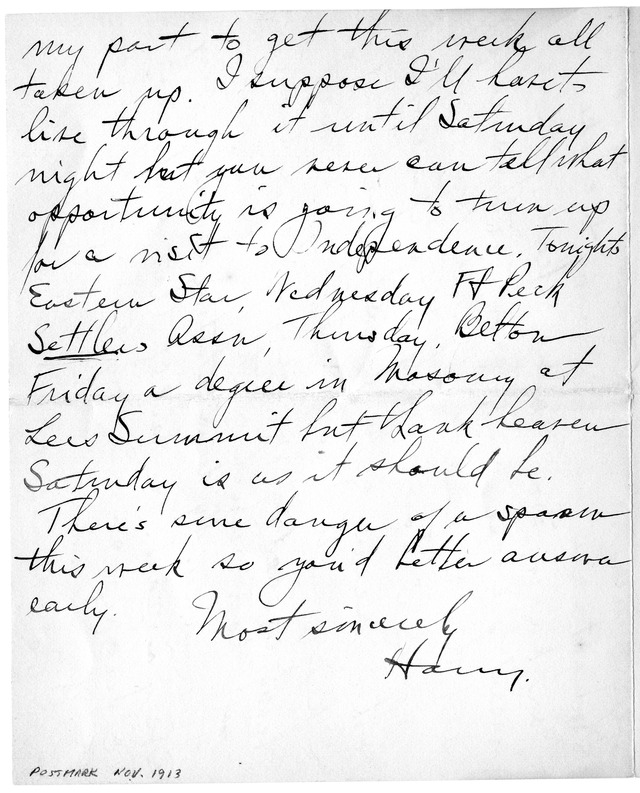 my part to get this week all
taken up. I suppose I'll have to
live through it until Saturday
night but you never can tell what
opportunity is going to turn up
for a visit to Independence. Tonights
Eastern Star, Wednesday Ft Peck
Settlers Assn, Thursday, Belton
Friday a degree in Masonry at
Lees Summit but thank heaven
Saturday is as it should be.
There's sure danger of a spasm
this week so you'd better answer
early.
Most sincerely
Harry.
POSTMARK NOV. 1913